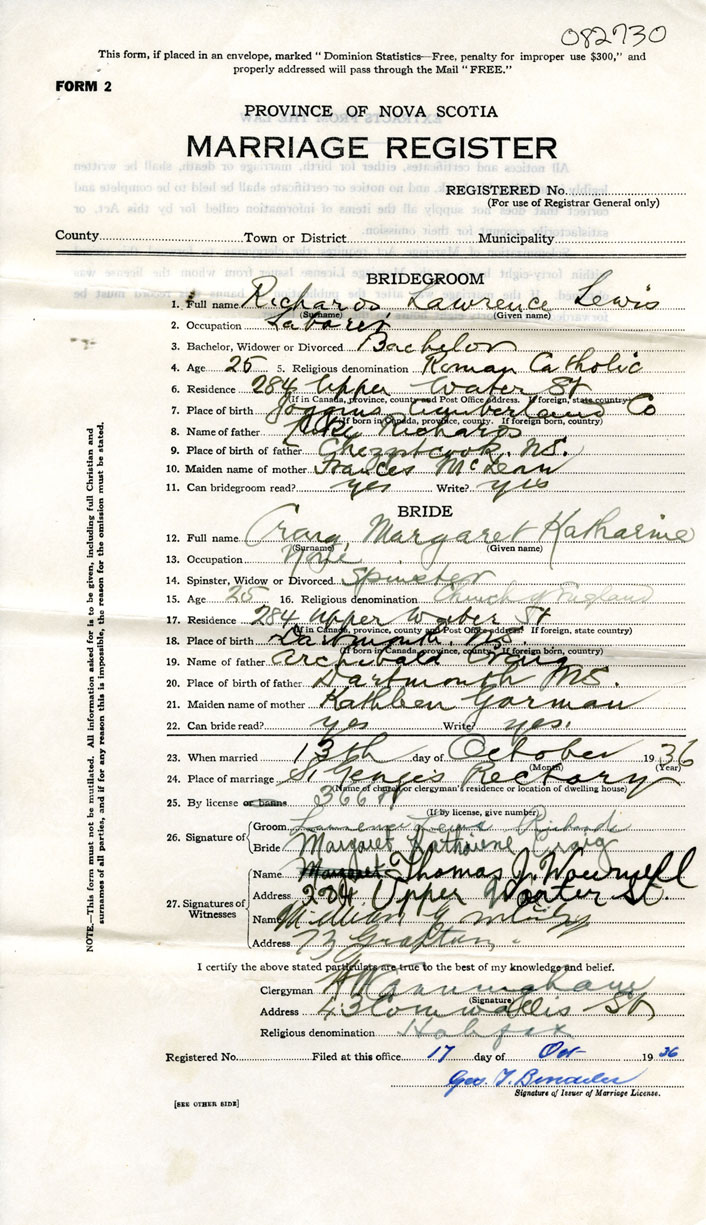 082730
This form, if placed in an envelope, marked "Dominion Statistics—Free, penalty for improper use $300," and
properly addressed will pass through the Mail "FREE."
FORM 2
PROVINCE OF NOVA SCOTIA
MARRIAGE REGISTER
REGISTERED No.
(For use of Registrar General only)
County Town or District Municipality
BRIDEGROOM
1. Full name Richards, Lawrence Lewis
(Surname) (Given name)
2. Occupation Laborer
3. Bachelor, Widower or Divorced Bachelor
4. Age 25 5. Religious denomination Roman Catholic
6. Residence 284 Upper Water St
(If in Canada, province, county and Post Office address. If foreign, state country)
7. Place of birth Joggins Cumberland Co
(If born in Canada, province, county. If foreign born, country)
8. Name of father Richards
9. Place of birth of father Chezzetcook, N.S.
10. Maiden name of mother Frances McLean
11. Can bridegroom read? yes Write? yes
BRIDE
12. Full name Craig, Margaret Katharine
(Surname) (Given name)
13. Occupation None
14. Spinster, Widow or Divorced Spinster
15. Age 25 16. Religious denomination Church of England
17. Residence 284 Upper Water St
(If in Canada, province, county and Post Office address. If foreign, state country)
18. Place of birth Dartmouth, N.S.
(If born in Canada, province, county. If foreign born, country)
19. Name of father Archibald Craig
20. Place of birth of father Dartmouth N.S.
21. Maiden name of mother Kathleen Gorman
22. Can bride read? yes Write? yes.
23. When married 13th day of October 1936
(Month) (Year)
24. Place of marriage St George's Rectory
(Name of church or clergyman's residence or location of dwelling house)
25. By license or banns
(If by license, give number)
26. Signature of Groom Lawrence Lewis Richards
Bride Margaret Katharine Craig
27. Signatures of Witnesses
Name Margaret Thomas J.
Address 284 Upper Water St.
Name
Address 73 Grafton
I certify the above stated particulars are true to the best of my knowledge and belief.
Clergyman H W Cunningham
(Signature)
Address 43 Cornwallis St
Religious denomination Halifax
Registered No. Filed at this office 17 day of Oct 1936
Geo. T.
Signature of Issuer of Marriage License.
[SEE OTHER SIDE]
NOTE.—This form must not be mutilated. All information asked for is to be given, including full Christian and
surnames of all parties, and if for any reason this is impossible, the reason for the omission must be stated.